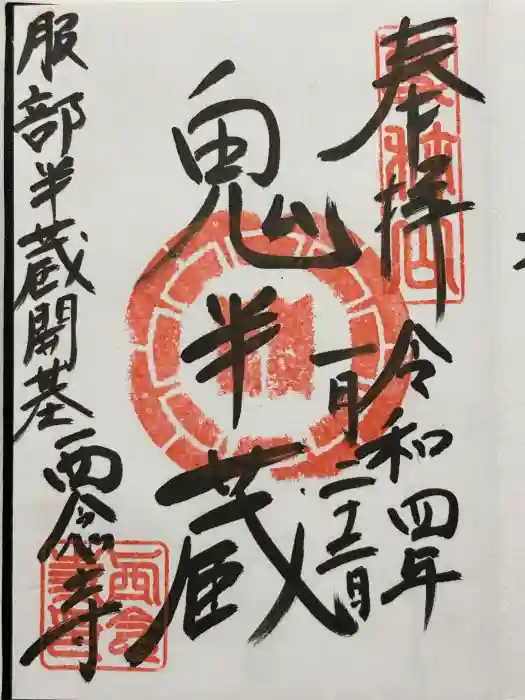 奉拝
令和四年
一月二十二日
鬼半蔵
服部半蔵開基 西念寺